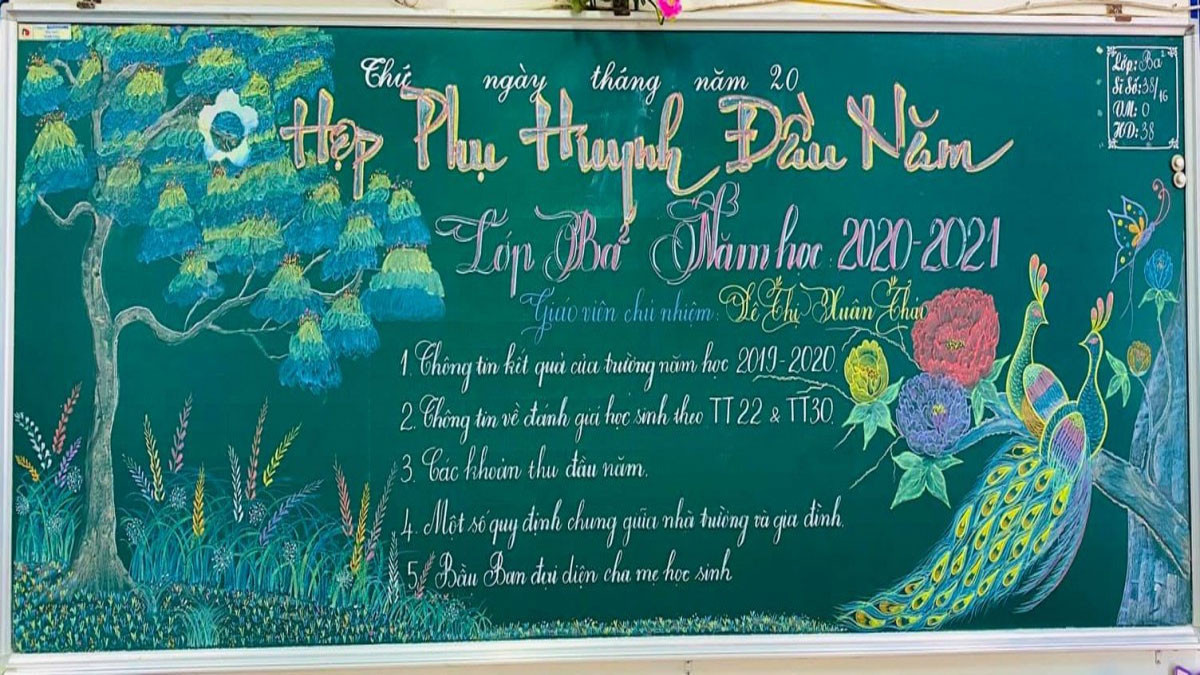 Thứ ngày tháng năm 20
Họp Phụ Huynh Đầu Năm
Lớp Ba² Năm học: 2020-2021
Giáo viên chủ nhiệm: Lê Thị Xuân
1. Thông tin kết quả của trường năm học 2019-2020.
2. Thông tin về đánh giá học sinh theo TT22 & TT30.
3. Các khoản thu đầu năm.
4. Một số quy định chung giữa nhà trường và gia đình.
5. Bầu Ban đại diện cha mẹ học sinh
Lớp: Ba²
Sĩ Số: 38/16
VM: 0
HD: 38